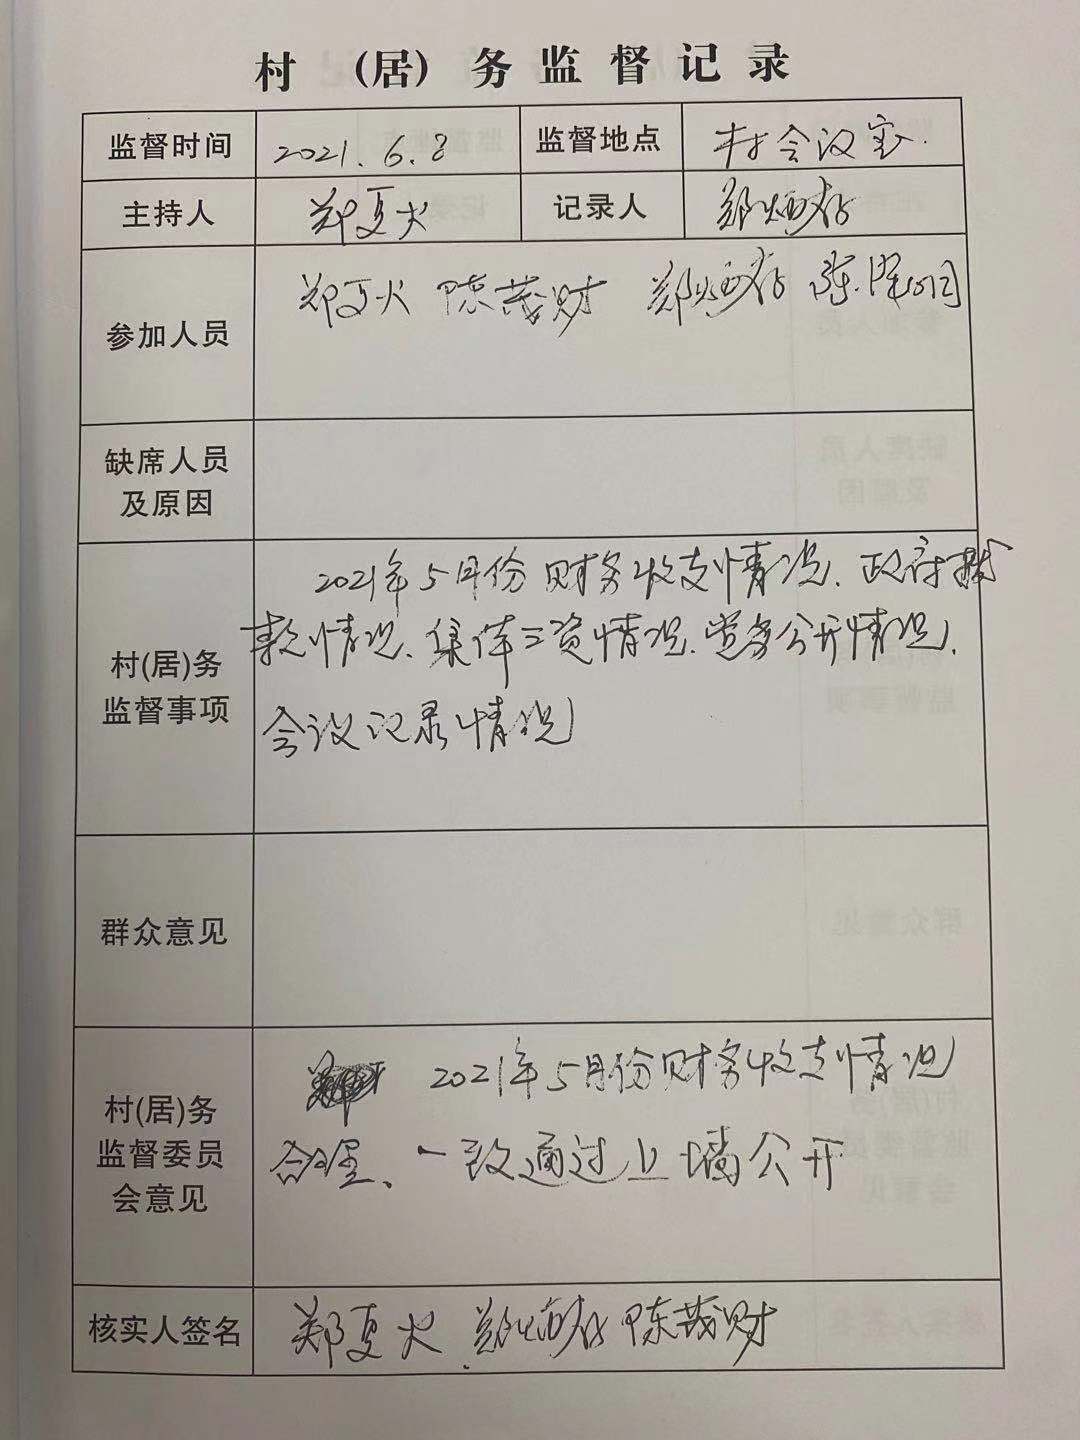 村 (居) 务 监 督 记 录
监督时间 2021.6.8 监督地点 村会议室.
主持人 郑夏火 记录人 郑炳存
参加人员 郑夏火 陈茂财 郑炳存 陈
缺席人员
及原因
2021年5月份财务收支情况、政府拨
款情况、集体三资情况、党务公开情况、
村(居)务
监督事项
会议记录情况
群众意见
2021年5月份财务收支情况
合理、一致通过上墙公开
村(居)务
监督委员
会意见
核实人签名 郑夏火 郑炳存 陈茂财